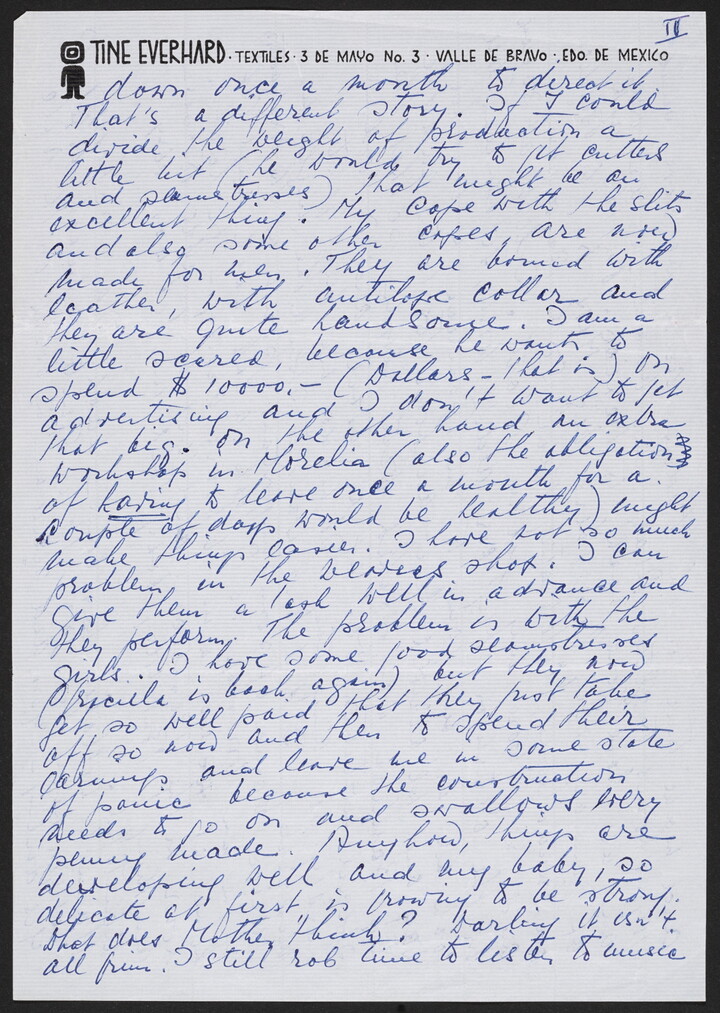 II
TINE EVERHARD · TEXTILES · 3 DE MAYO No. 3 · VALLE DE BRAVO · EDO. DE MEXICO
down once a month to direct it.
That's a different story. If I could
divide the weight of production a
little bit (he would try to get cutters
and seamstresses) that might be an
excellent thing. My cape with the slits
and also some other capes, are now
made for men. They are bound with
leather, with antilope collar and
they are quite handsome. I am a
little scared, because he wants to
spend $ 10000.- (Dollars - that is) on
advertising and I don't want to get
that big. On the other hand an extra
workshop in Morelia (also the obligation
of having to leave once a month for a
couple of days would be healthy) might
make things easier. I have not so much
problem in the weavers shop. I can
give them a task well in advance and
they perform. The problem is with the
girls. I have some good seamstresses
( is back again) but they now
get so well paid that they just take
off so now and then to spend their
earnings and leave me in some state
of panic because the construction
needs to go on and swallows every
penny made. Anyhow, things are
developing well and my baby, so
delicate at first is growing to be strong.
What does Mother think? Darling it isn't
all grim. I still rob time to listen to music